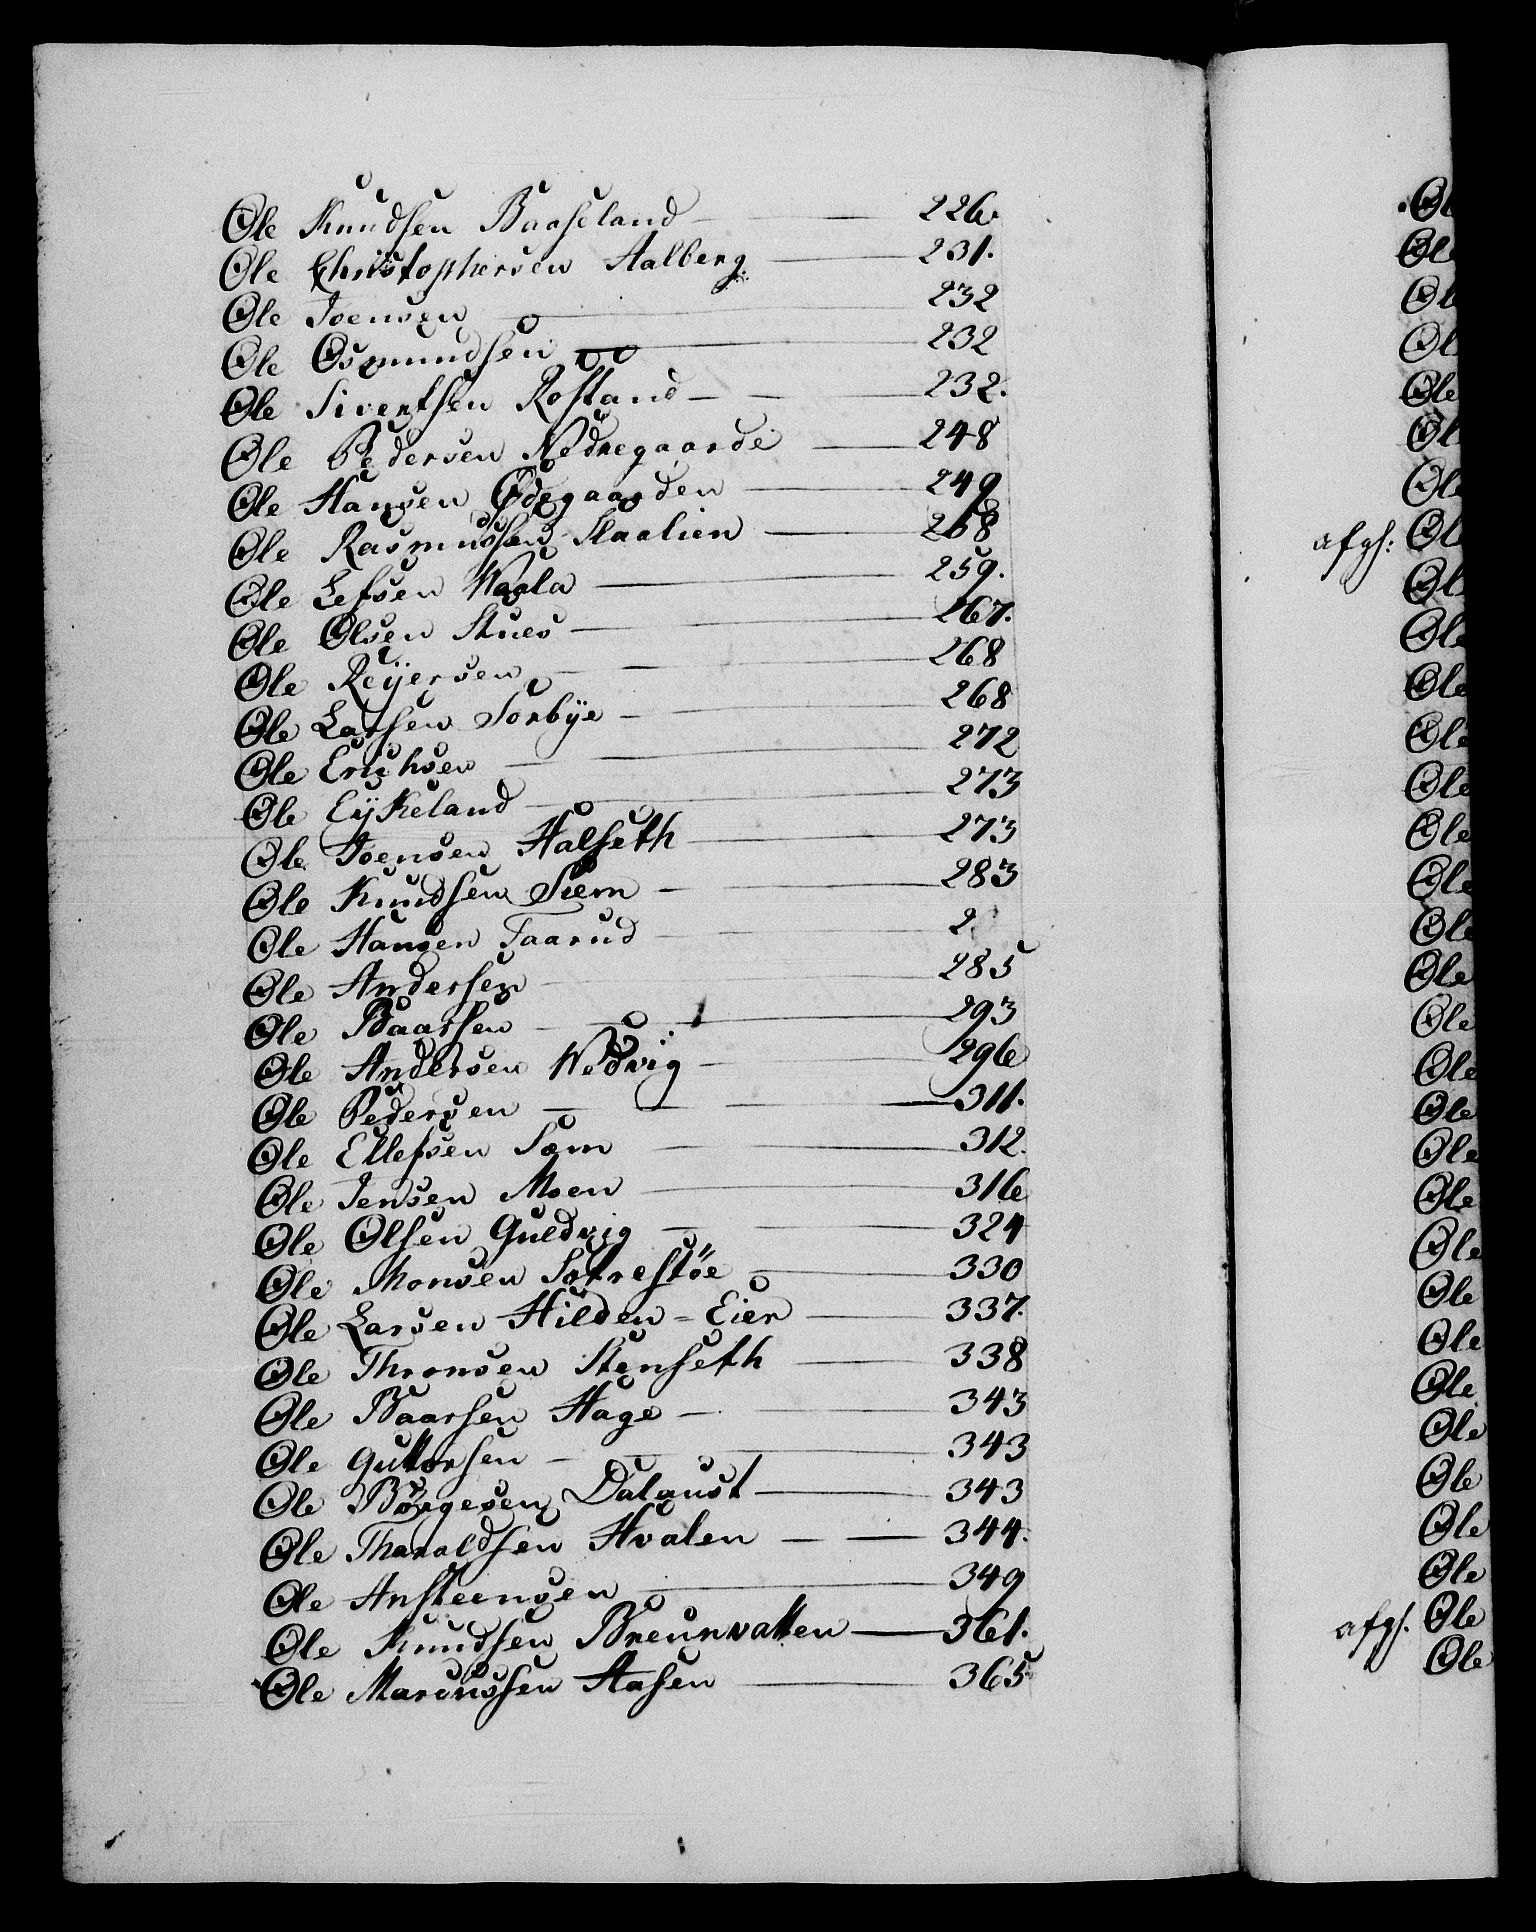 Ole Knudsen Baaseland 226.
Ole Christophersen Aalberg. 231.
Ole Joensen 232
Ole Osmundsen 232
Ole Sivertsen Rostand 232.
Ole Pedersen Nedregaarde 248
Ole Hansen Ødegaarden 249
Ole Rasmussen Slaalien 258
Ole Lefsen Waala 259.
Ole Olsen Stues 267.
Ole Reÿersen 268
Ole Larsen Sorbÿe 268
Ole Erichsen 272
Ole Eÿkeland 273
Ole Joensen Halseth 273
Ole Knudsen Siem 283
Ole Hansen Taarud 2
Ole Andersen 285
Ole Baarsen 293
Ole Andersen Wedvig 296
Ole Pedersen 311.
Ole Ellefsen Sæm 312.
Ole Jensen Moen 316
Ole Olsen Guldvig 324
Ole Monsen 330
Ole Larsen Hilden = Eier 337.
Ole Thronsen Stenseth 338
Ole Baarsen Hage 343
Ole Guttorsen 343
Ole Børgesen Dalaust 343
Ole Tharaldsen Hvalen 344.
Ole Ansteensen 349
Ole Knudsen Breunvatten 361.
Ole Marcussen Aasen 365
Ol
Ole
Ol
Ol
Ole
Ol
Ole
afgh: Ol
Ole
Ole
Ole
Ole
Ole
Ole
Ole
Ole
Ole
Ole
Ole
Ole
Ole
Ole
Ole
Ole
Ole
Ole
Ole
Ole
Ole
Ole
afgh. Ole
Ole